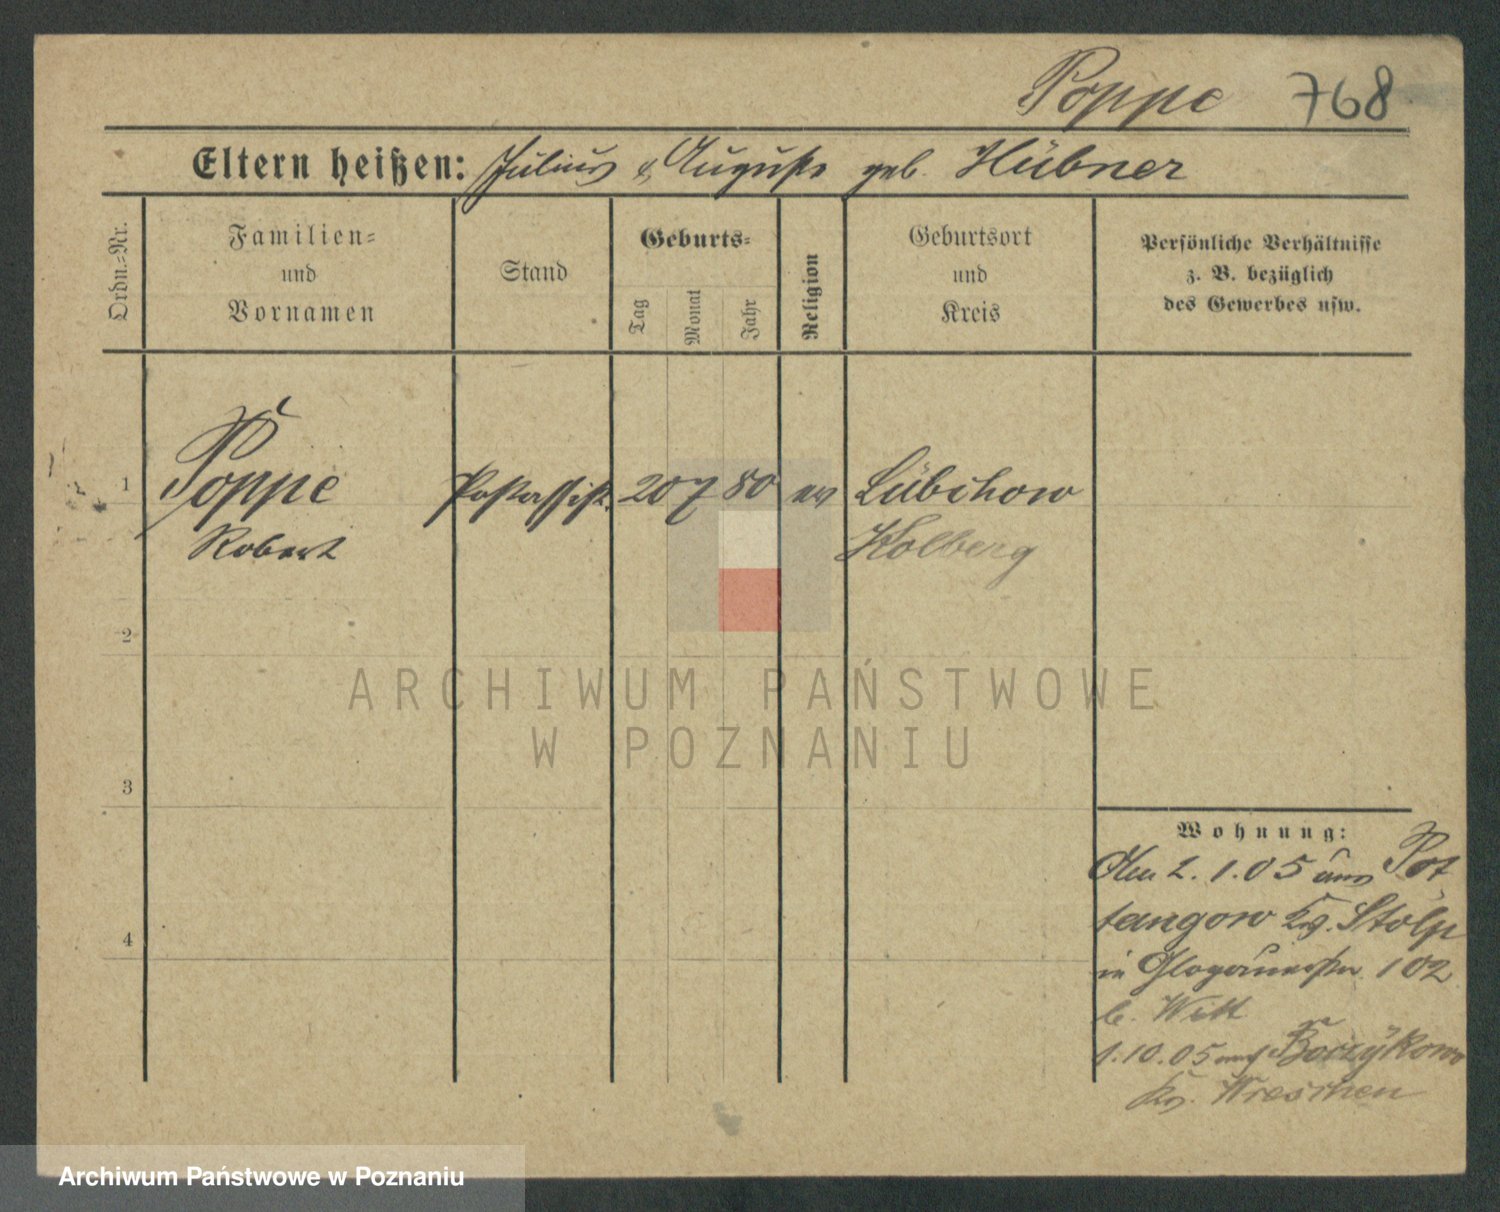 Poppe 768
Eltern heißen: Julius & Auguste geb. Hübner
Ordn.=Nr.
Familien=
und
Vornamen
Stand
Geburts=
Tag
Monat
Jahr
Religion
Geburtsort
und
Kreis
Persönliche Verhältnisse
z. B. bezüglich
des Gewerbes usw.
1 Poppe Postassist. 20 7 80 ev Lübchow
Robert Kolberg
2
ARCHIWUM PAŃSTWOWE
W POZNANIU
3
4
Wohnung:
Am 2.1.05 aus Pot
tangow Krs. Stolp
in Glogauerstr. 102
b. Witt
1.10.05 nach Borzykowo
Krs. Wreschen
Archiwum Państwowe w Poznaniu